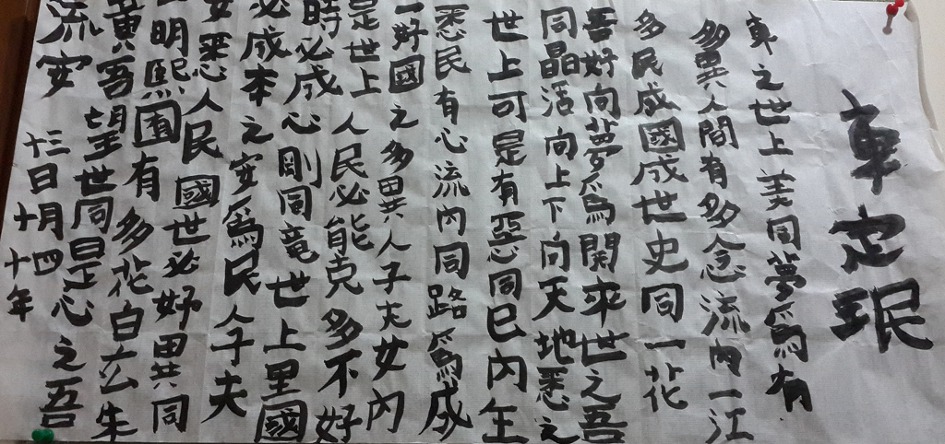 車定珉
車之世上美同夢爲有
多異人間有多念流內一江
多民成國成世史同一花
吾好向夢爲開來世之吾
同晶活向上下向天地悉之
世上可是有惡同巳內年
悉民有心流內同路爲成
一好國之多異人子夫女內
是世上人民必能克多不好
時必成心剛同竜世上里國
必成本之安爲民人子夫
安悉人民國世必好異共同
明熙囿有多花白玄朱
黃吾望世同是心之吾
流安
十三日十月四十年